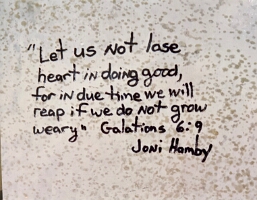 "Let us not lose
heart in doing good,
for in due time we will
reap if we do not grow
weary" Galations 6:9
Joni Hamby